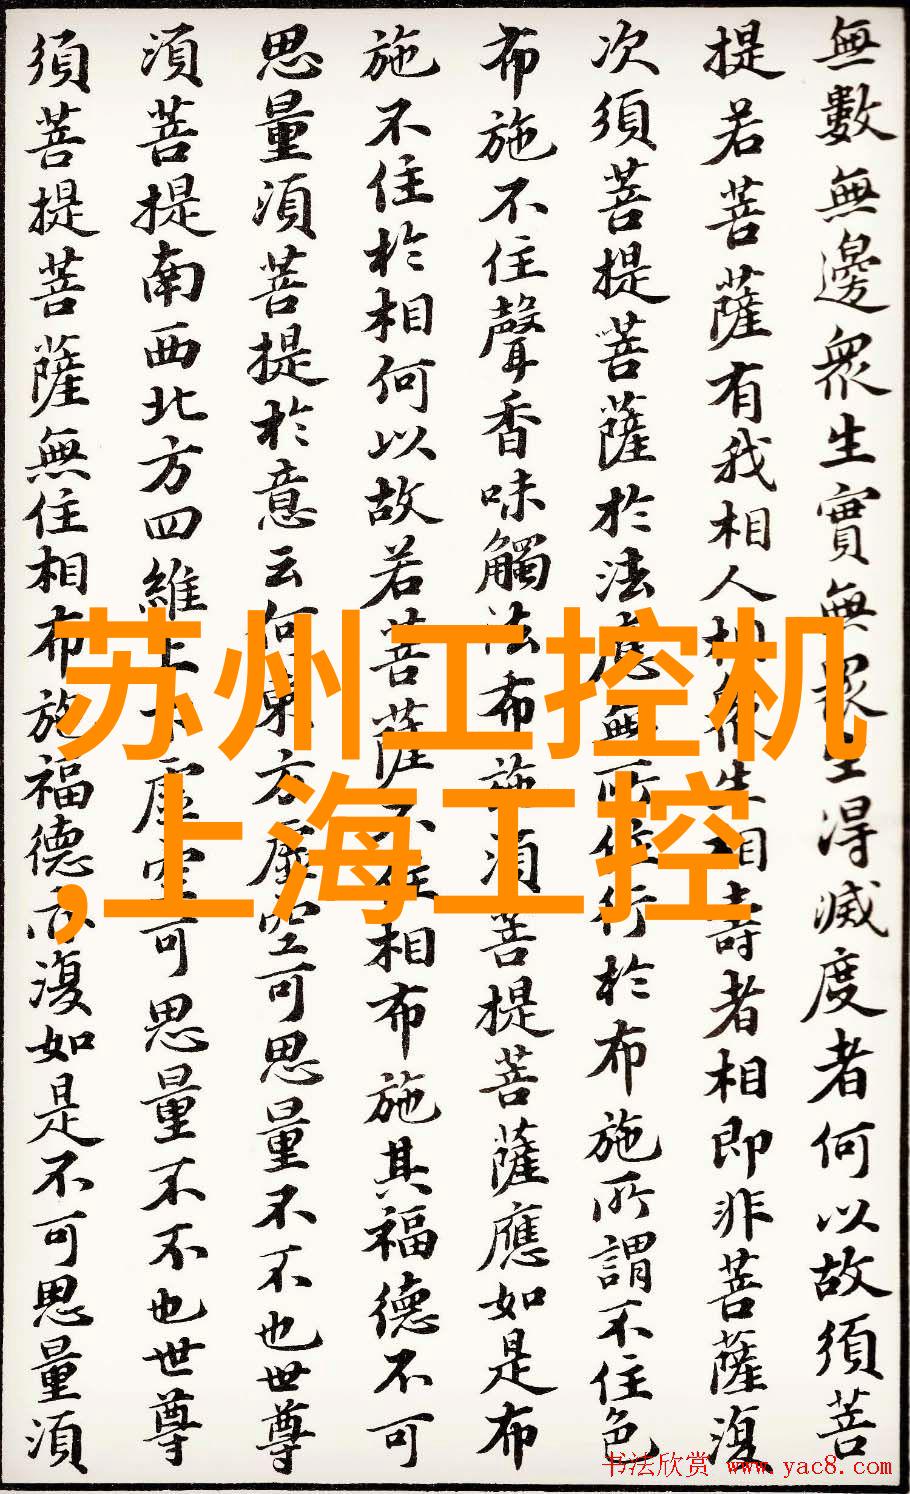 無數無邊衆生實無衆生得滅度者何以故須菩
提若菩薩有我相人相衆生相壽者相即非菩薩復
次須菩提菩薩於法應無所住行於布施所謂不住色
布施不住聲香味觸法布施須菩提菩薩應如是布
施不住於相何以故若菩薩不住相布施其福德不可
思量須菩提於意云何東方虛空可思量不不也世尊
須菩提南西北方四維上下虛空可思量不不也世尊
須菩提菩薩無住相布施福德亦復如是不可思量須
苏州工控机
,上海工控
书法欣赏 www.yac8.com